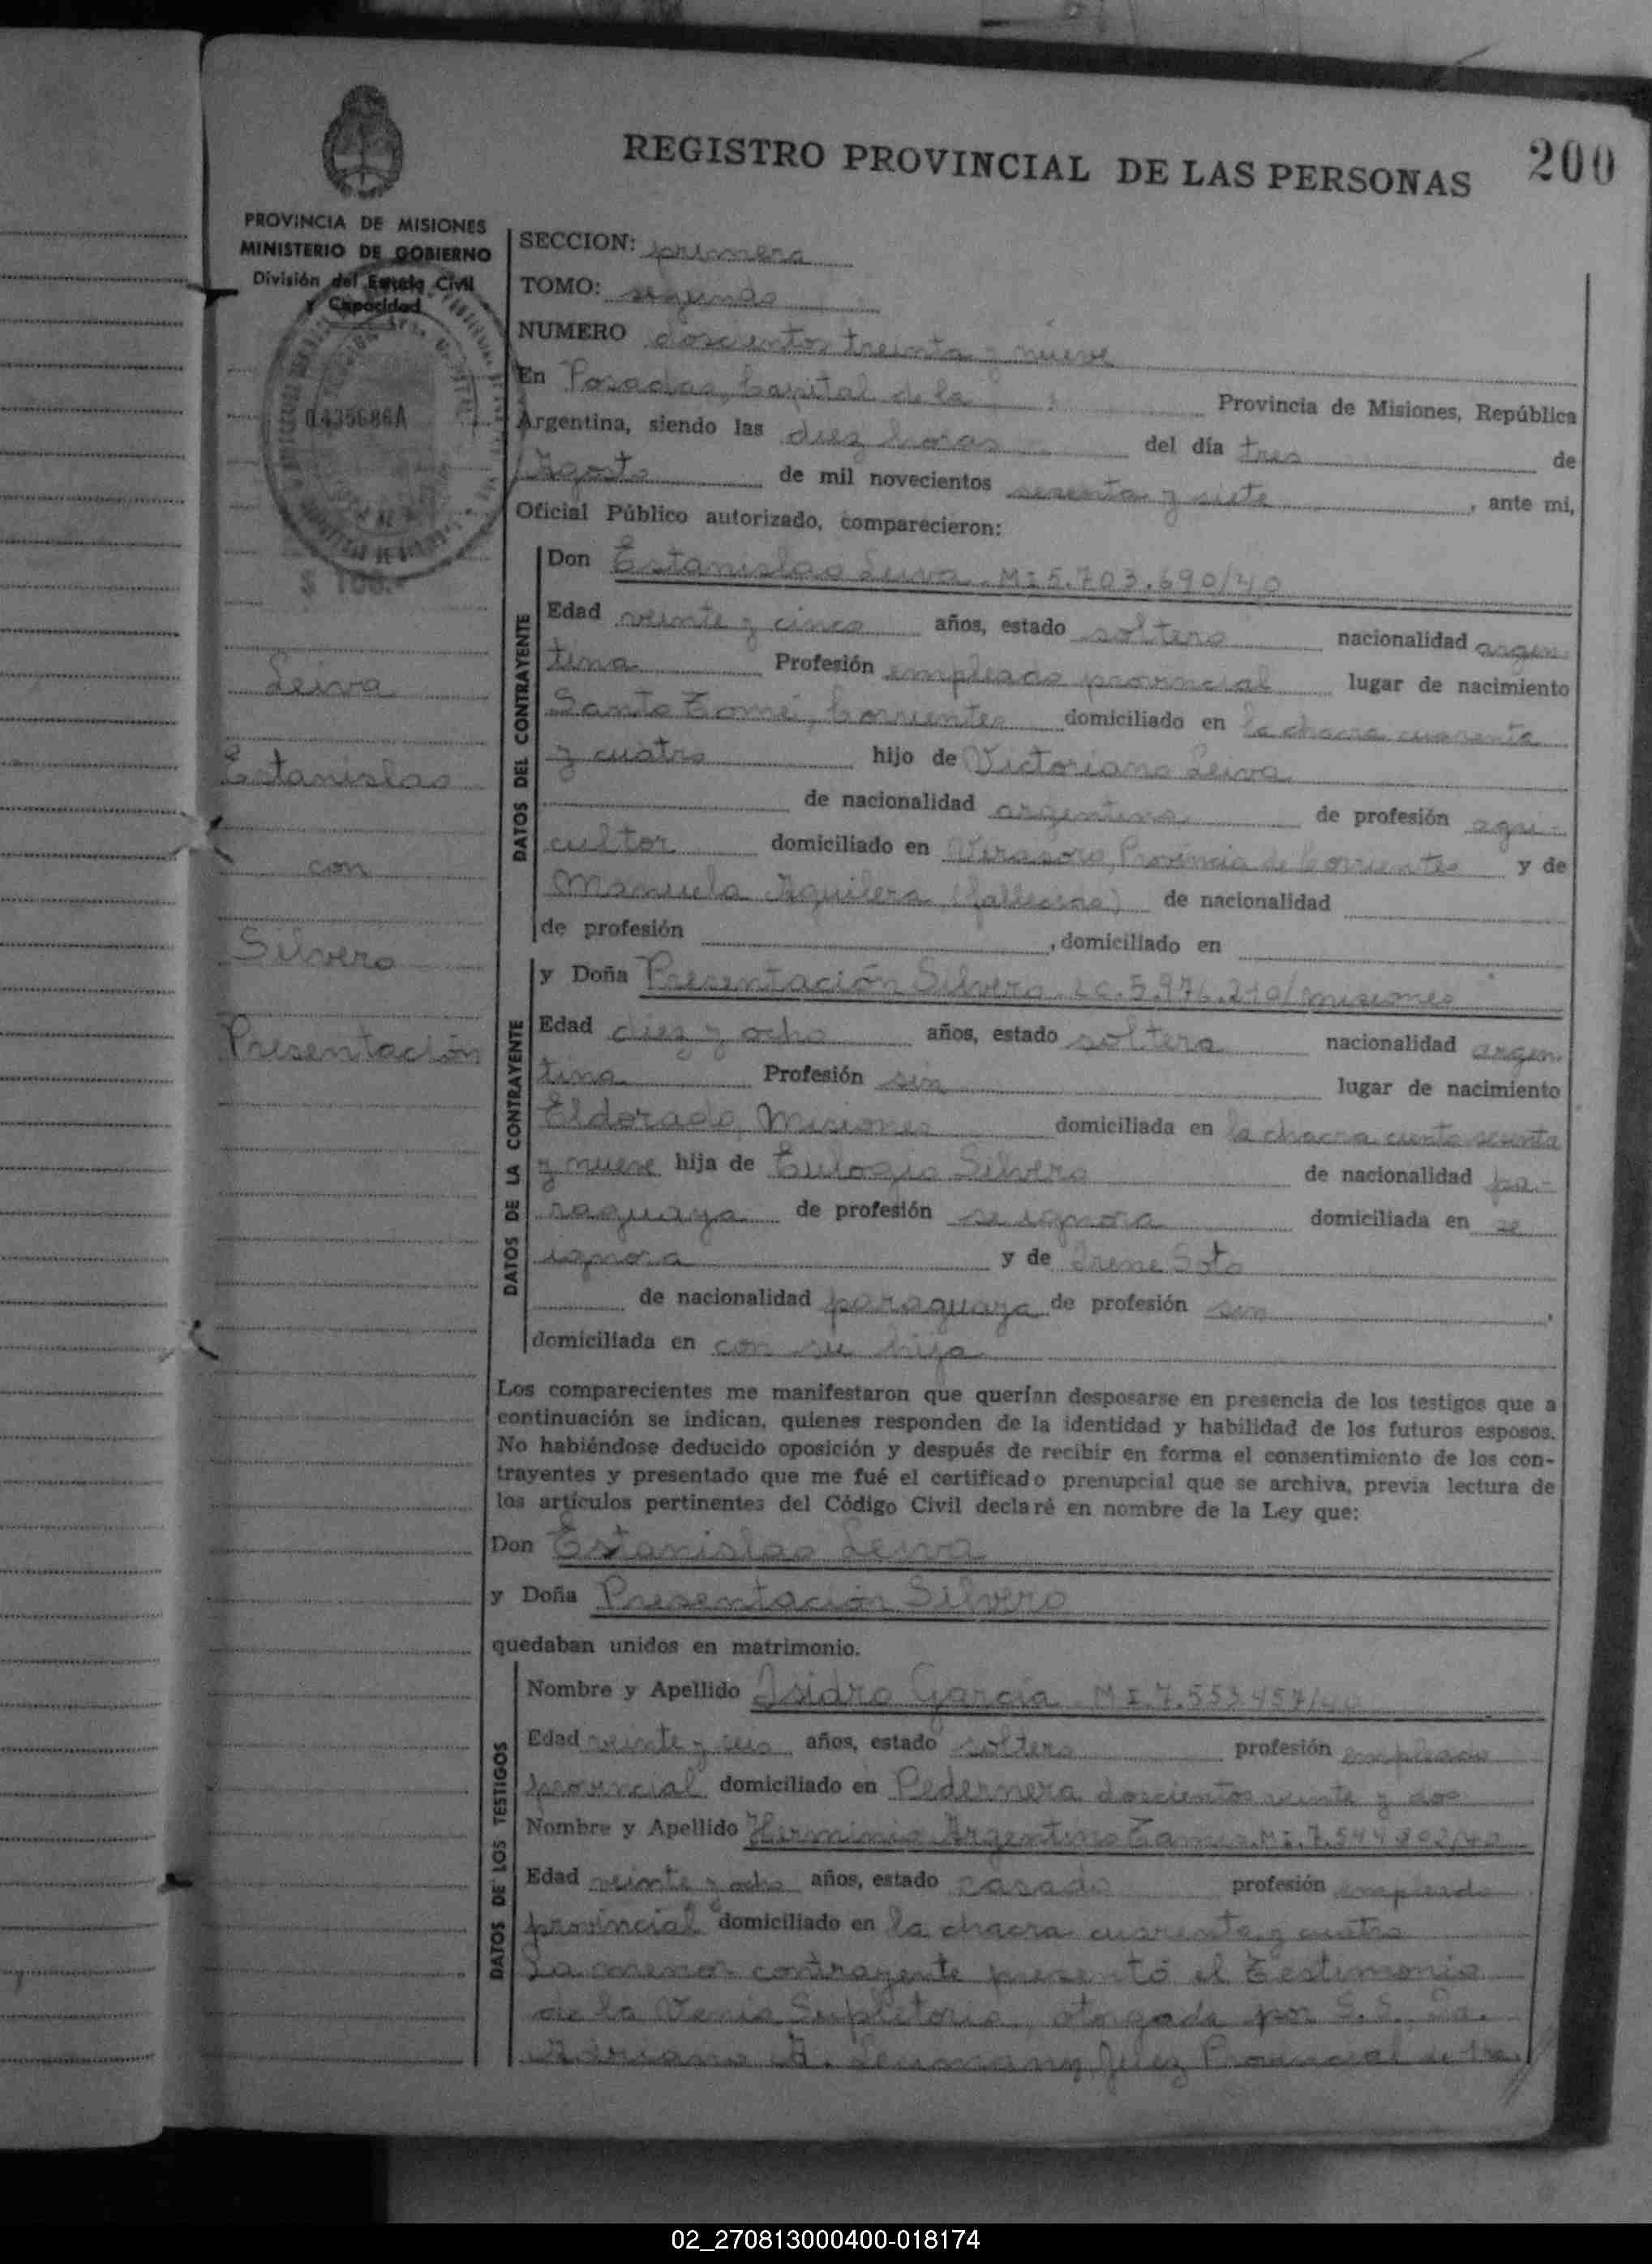 200
REGISTRO PROVINCIAL DE LAS PERSONAS
PROVINCIA DE MISIONES
MINISTERIO DE GOBIERNO
División del Estado Civil
y Capacidad
0435686A
$ 100.-
Leiva
Estanislao
con
Silvero
Presentación
SECCION: primera
TOMO: segundo
NUMERO doscientos treinta y nueve
En Posadas, Capital de la Provincia de Misiones, República
Argentina, siendo las diez horas del día tres de
Agosto de mil novecientos sesenta y siete, ante mi,
Oficial Público autorizado, comparecieron:
DATOS DEL CONTRAYENTE
Don Estanislao Leiva. MI 5.703.690/40
Edad veinte y cinco años, estado soltero nacionalidad argen
tina Profesión empleado provincial lugar de nacimiento
Santo Tomé, Corrientes domiciliado en la chacra cuarenta
y cuatro hijo de Victoriano Leiva
de nacionalidad argentina de profesión agri-
cultor domiciliado en Virasoro, Provincia de Corrientes y de
Manuela Aguilera (fallecida) de nacionalidad
de profesión , domiciliado en
DATOS DE LA CONTRAYENTE
y Doña Presentación Silvero. LC. 5.976.210/misiones
Edad diez y ocho años, estado soltera nacionalidad argen
tina Profesión sin lugar de nacimiento
Eldorado, Misiones domiciliada en la chacra ciento
y nueve hija de Eulogio Silvero de nacionalidad pa-
raguaya de profesión se ignora domiciliada en se
ignora y de Irene Soto
de nacionalidad paraguaya de profesión sin,
domiciliada en con su hija
Los comparecientes me manifestaron que querían desposarse en presencia de los testigos que a
continuación se indican, quienes responden de la identidad y habilidad de los futuros esposos.
No habiéndose deducido oposición y después de recibir en forma el consentimiento de los con-
trayentes y presentado que me fué el certificado prenupcial que se archiva, previa lectura de
los artículos pertinentes del Código Civil declaré en nombre de la Ley que:
Don Estanislao Leiva
y Doña Presentación Silvero
quedaban unidos en matrimonio.
DATOS DE LOS TESTIGOS
Nombre y Apellido Isidro García. MI. 7.553.457/40
Edad veinte y años, estado soltero profesión empleado
provincial domiciliado en Pedernera doscientos veinte y dos
Nombre y Apellido Herminio Argentino MI. 7.544.802/40
Edad veinte y ocho años, estado casado profesión empleado
provincial domiciliado en la chacra cuarenta y cuatro
La menor contrayente presentó el Testimonio
de la Venia Supletoria, otorgada por S. S.
Adriano A. Juez Provincial de
02_270813000400-018174